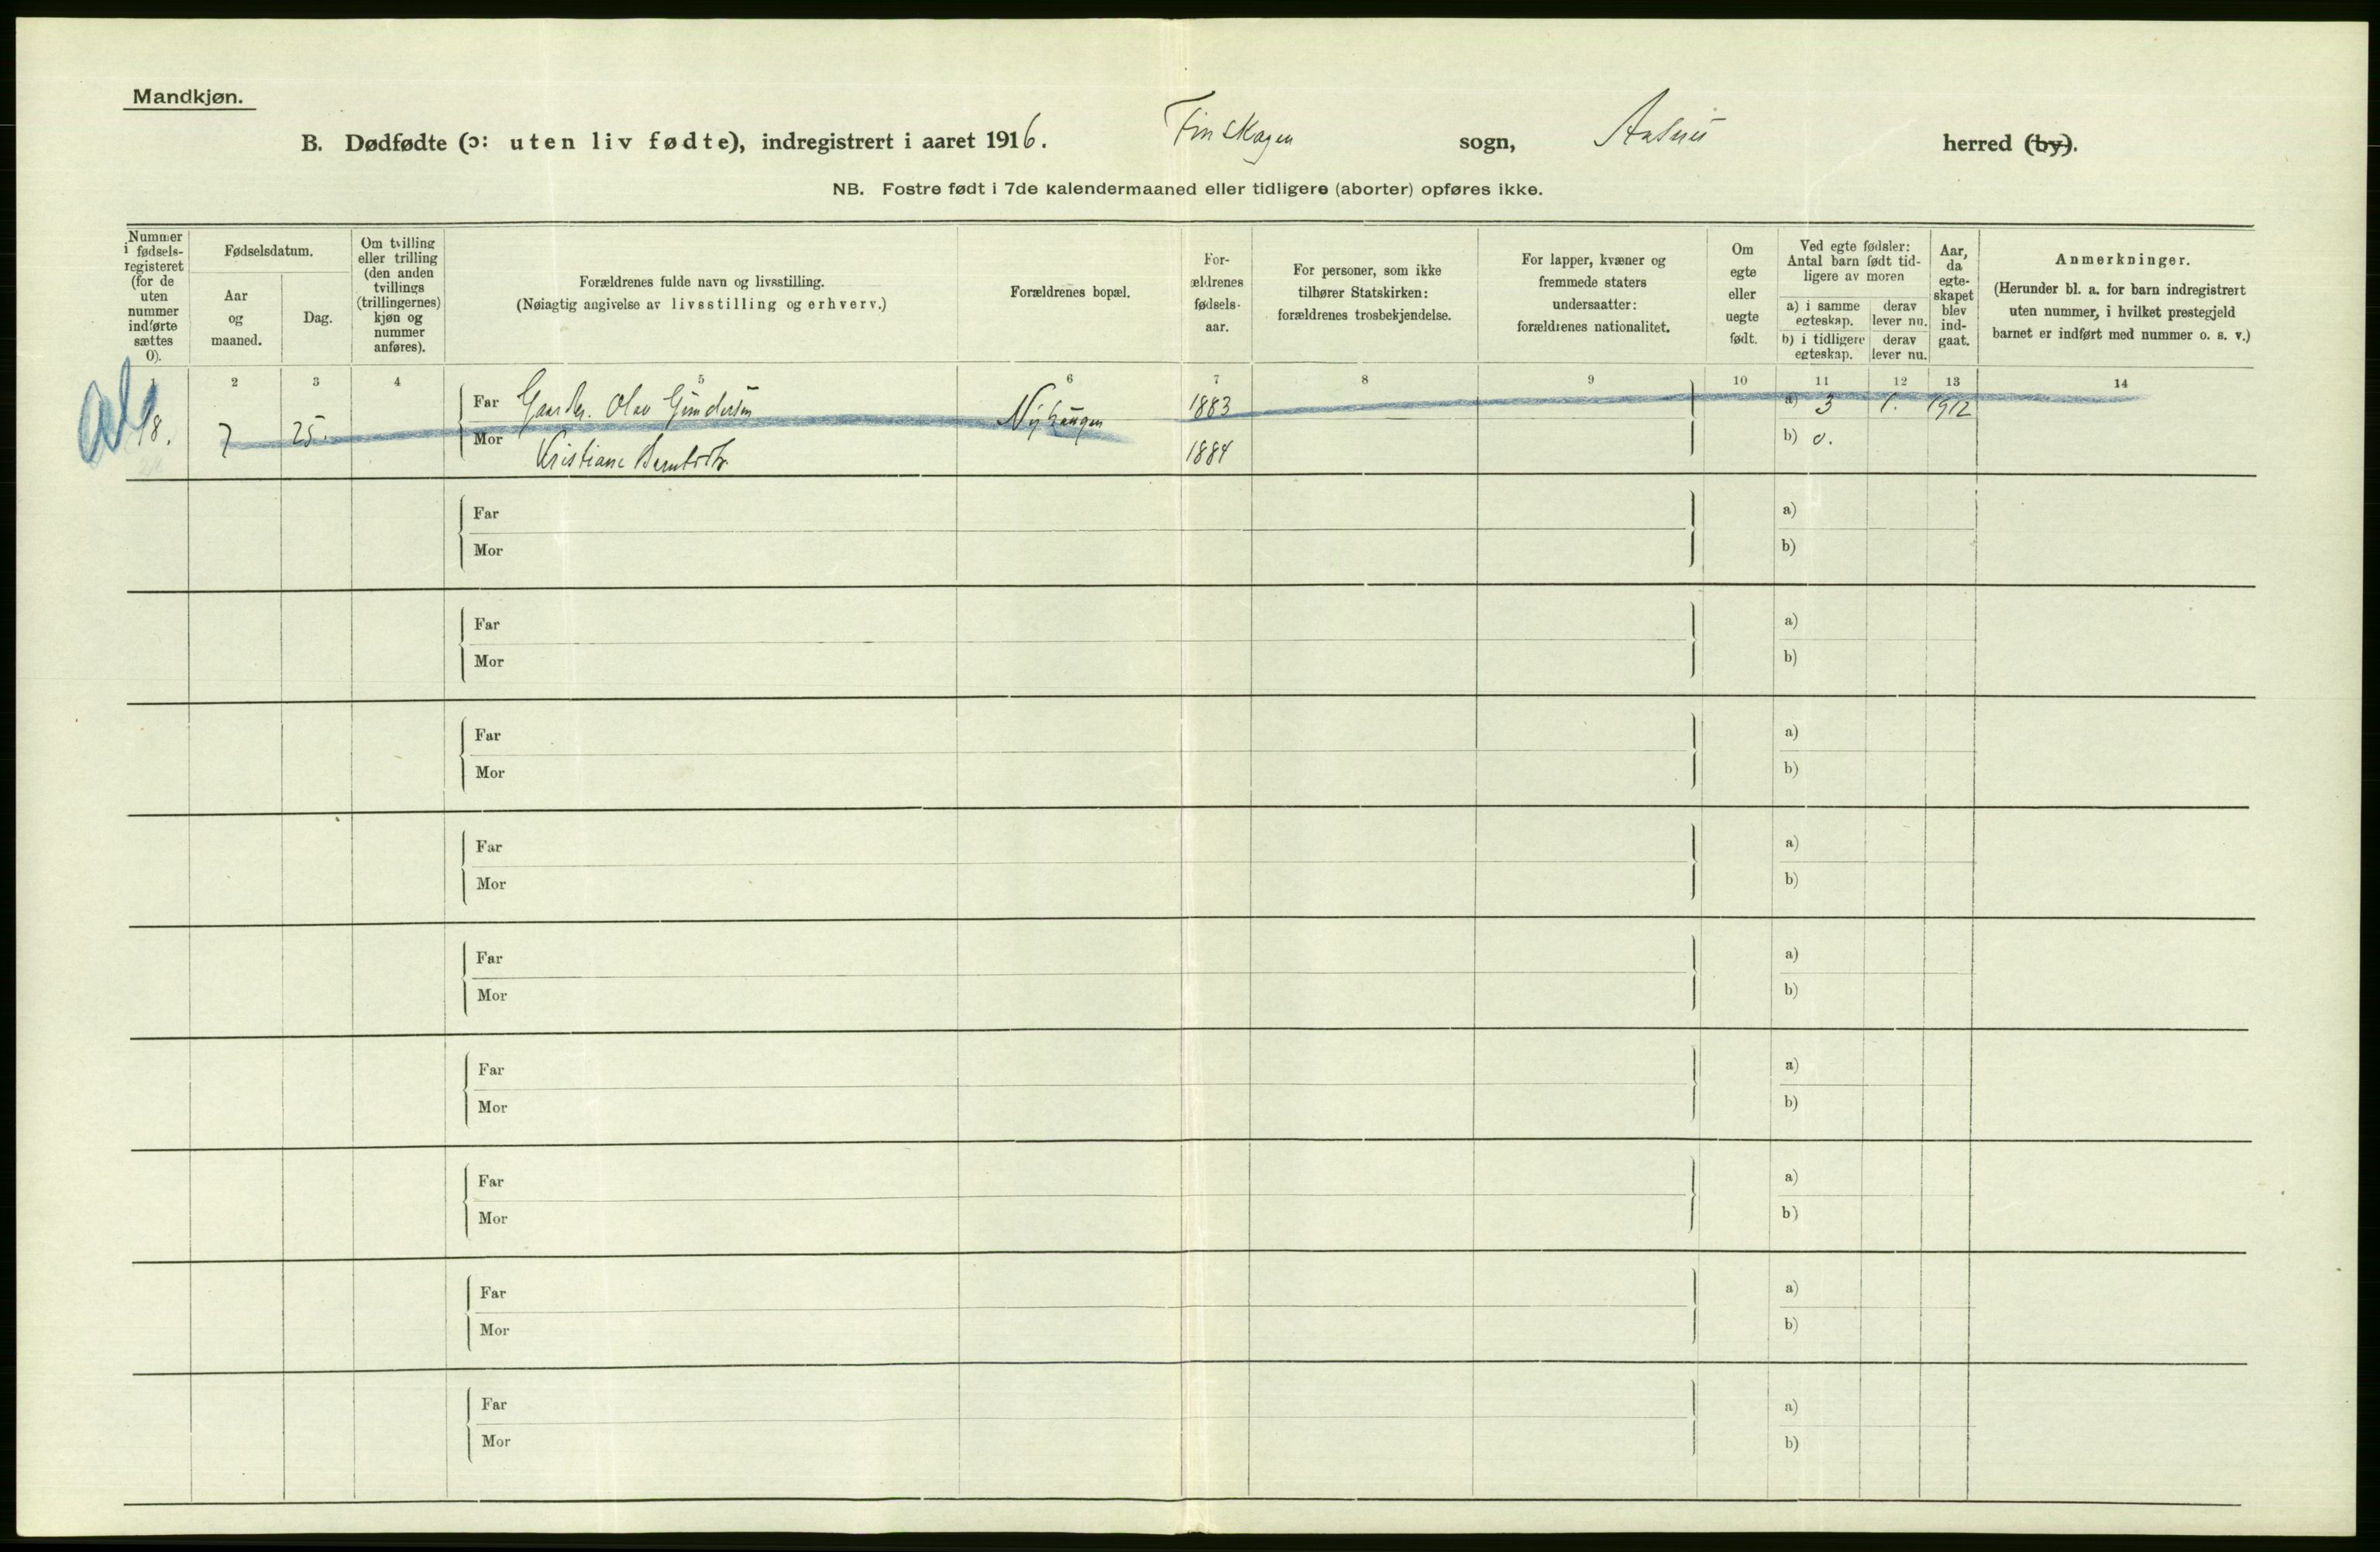 Mandkjøn.
B. Dødfødte (ɔ: uten liv fødte), indregistrert i aaret 1916. Finskogen sogn, Aasnes herred (by).
NB. Fostre født i 7de kalendermaaned eller tidligere (aborter) opføres ikke.
Nummer i fødsels-registeret (for de uten nummer indførte sættes 0).
Fødselsdatum.
Aar og maaned.
Dag.
Om tvilling eller trilling (den anden tvillings (trillingernes) kjøn og nummer anføres).
Forældrenes fulde navn og livsstilling.
(Nøiagtig angivelse av livsstilling og erhverv.)
Forældrenes bopæl.
For-ældrenes fødsels-aar.
For personer, som ikke tilhører Statskirken: forældrenes trosbekjendelse.
For lapper, kvæner og fremmede staters undersaatter: forældrenes nationalitet.
Om egte eller uegte født.
Ved egte fødsler: Antal barn født tid-ligere av moren
a) i samme egteskap.
derav lever nu.
b) i tidligere egteskap.
derav lever nu.
Aar, da egte-skapet blev ind-gaat.
Anmerkninger.
(Herunder bl. a. for barn indregistrert uten nummer, i hvilket prestegjeld barnet er indført med nummer o. s. v.)
1 2 3 4 5 6 7 8 9 10 11 12 13 14
18. 7 25.
Far Gaardbr. Olav Gundersen Nyhaugen 1883 a) 3 1. 1912
Mor Kristiane Berntsdtr 1884 b) 0.
Far a)
Mor b)
Far a)
Mor b)
Far a)
Mor b)
Far a)
Mor b)
Far a)
Mor b)
Far a)
Mor b)
Far a)
Mor b)
Far a)
Mor b)
Far a)
Mor b)